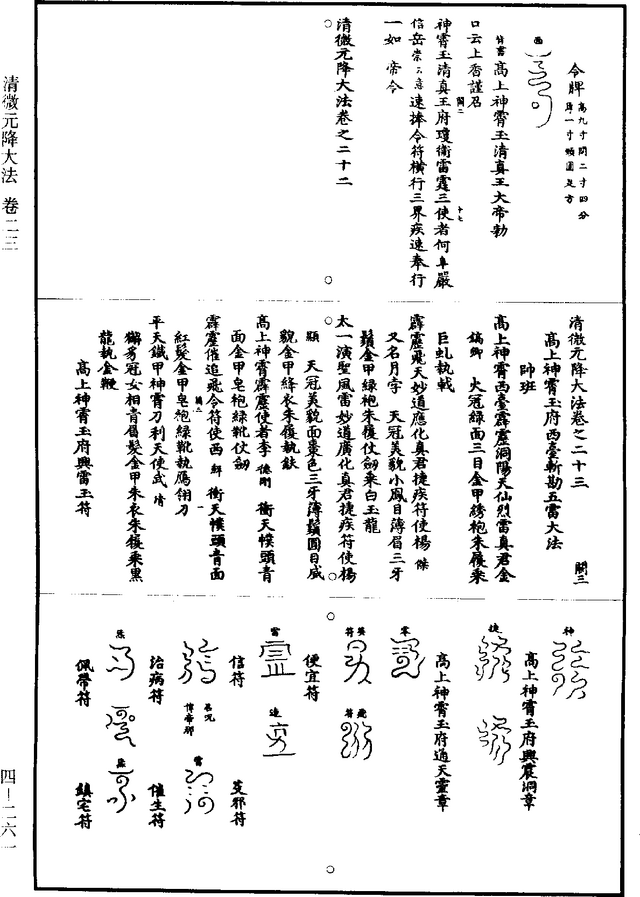 清微元降大法 卷二三
四—二六一
令牌 高九寸闊二寸四分
厚一寸頭圓足方
面
背書 高上神霄玉清真王大帝勅
口云上香謹召
神霄玉清真王府瓊衛雷霆三使者何阜嚴
信岳崇云云意速捧令符橫行三界疾速奉行
一如 帝令
清微元降大法卷之二十二
清微元降大法卷之二十三
高上神霄玉府西臺斬勘五雷大法
帥班
高上神霄西臺霹靂洞陽天仙烈雷真君金
火冠綠面三目金甲綉袍朱履乘
巨虬執戟
霹靂飛天妙道應化真君捷疾符使楊 傑
又名月孛 天冠美貌小鳳目薄眉三牙
鬚金甲綠袍朱履仗劔乘白玉龍
太一演聖風雷妙道廣化真君捷疾符使楊
顯 天冠美貌面棗色三牙薄鬚圓目威
貌金甲絳衣朱履執鈇
高上神霄霹靂使者李 德剛 衝天幞頭青
面金甲皂袍綠靴仗劔
霹靂催追飛令符使西 衝天幞頭青面
紅髮金甲皂袍綠靴執鴈翎刀
平天鐵甲神霄刀利天使武
獬豸冠女相青眉髮金甲朱衣朱履乘黑
龍執金鞭
高上神霄玉府興雷玉符
神
高上神霄玉府興震洞章
捷
高上神霄玉府通天靈章
便宜符
雷
信符
茭邪符
治病符
催生符
佩帶符
鎮宅符